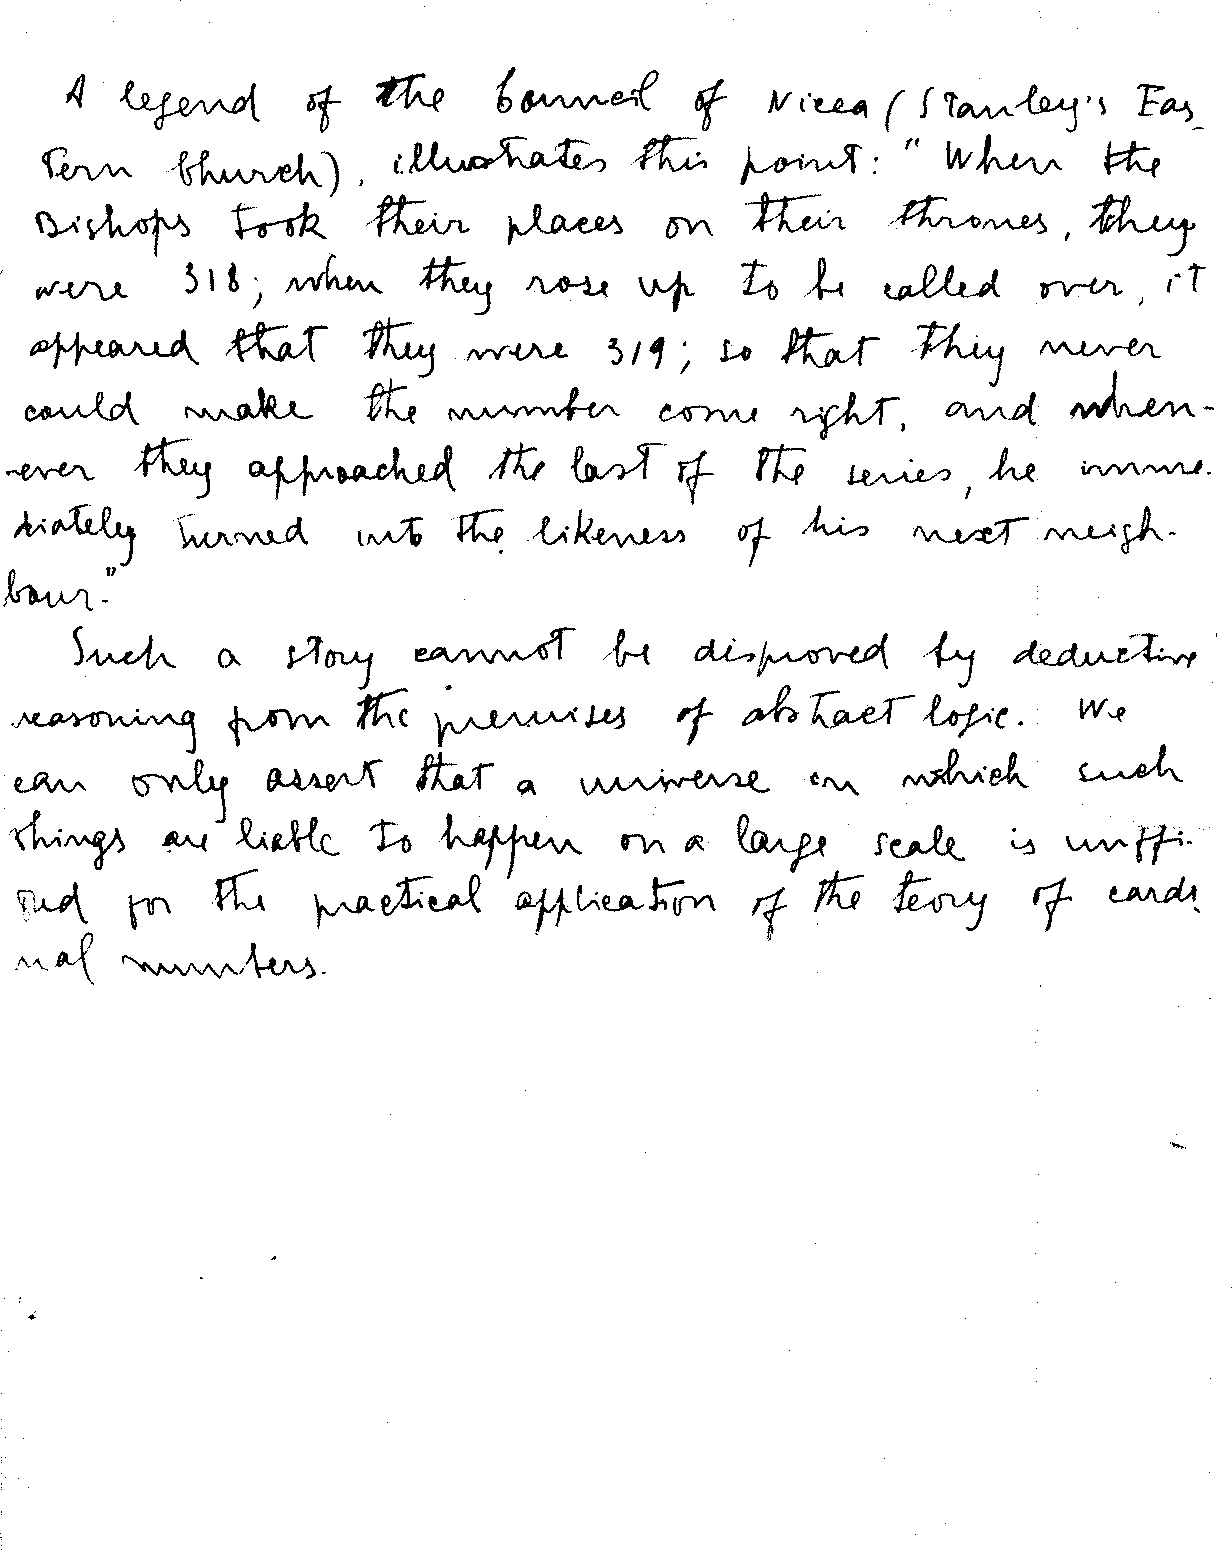 A legend of the Council of Nicea (Stanley's Eas-
tern Church), illustrates this point: "When the
Bishops took their places on their thrones, they
were 318; when they rose up to be called over, it
appeared that they were 319; so that they never
could make the number come right, and when-
-ever they approached the last of the series, he imme-
diately turned into the likeness of his next neigh-
bour."
Such a story cannot be disproved by deductive
reasoning from the premises of abstract logic. We
can only assert that a universe in which such
things are liable to happen on a large scale is unffi-
ted for the practical application of the teory of cardi-
nal numbers.